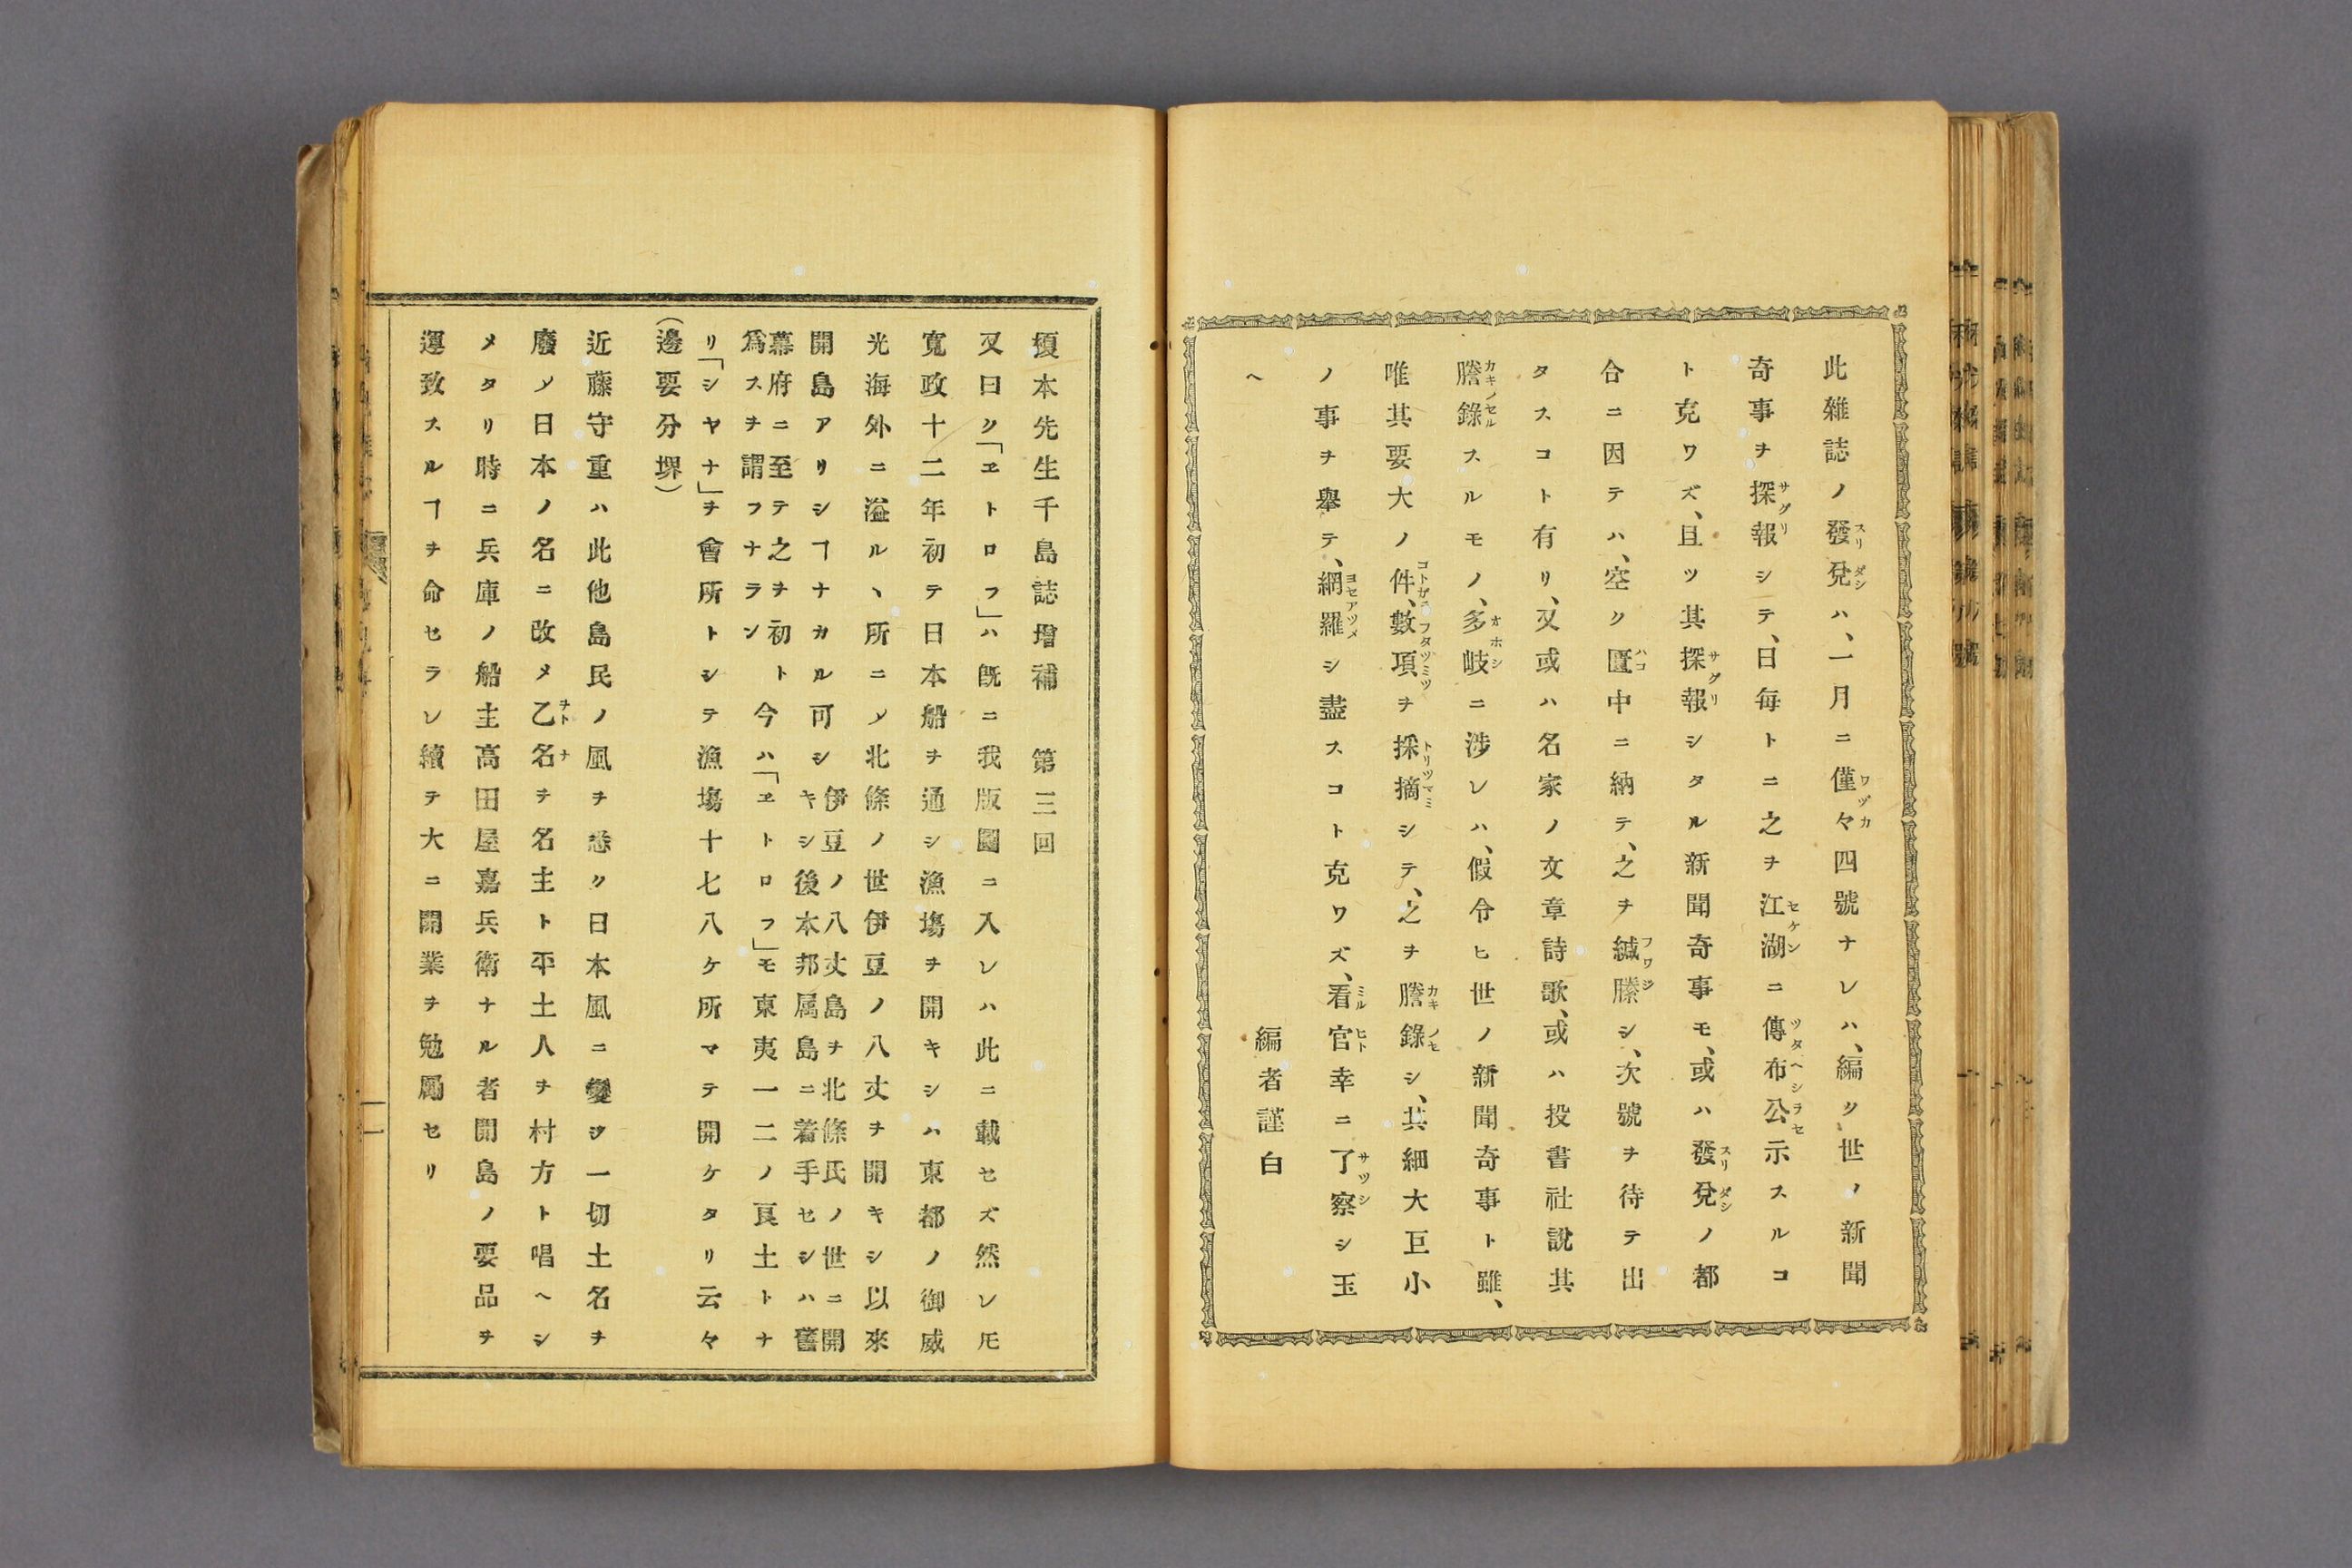 此雜誌ノ發兌ハ、一月ニ僅々四號ナレハ、編ク世ノ新聞
奇事ヲ探報シテ、日每トニ之ヲ江湖ニ傳布公示スルコ
ト克ワズ、且ツ其探報シタル新聞奇事モ、或ハ發兌ノ都
合ニ因テハ、空ク匣中ニ納テ、之ヲ緘縢シ、次號ヲ待テ出
タスコト有リ、又或ハ名家ノ文章詩歌、或ハ投書社說其
謄錄スルモノ、多岐ニ涉レハ、假令ヒ世ノ新聞奇事ト雖、
唯其要大ノ件、數項ヲ採摘シテ、之ヲ謄錄シ、其細大巨小
ノ事ヲ擧テ、網羅シ盡スコト克ワズ、看官幸ニ了察シ玉
ヘ
編者謹白
榎本先生千島誌增補　第三回
又曰ク「ヱトロフ」ハ旣ニ我版圖ニ入レハ此ニ載セズ然レ𪜈
寬政十二年初テ日本船ヲ通シ漁塲ヲ開キシハ東都ノ御威
光海外ニ溢ルヽ所ニ〆北條ノ世伊豆ノ八丈ヲ開キシ以來
開島アリシヿナカル可シ伊豆ノ八丈島ヲ北條氏ノ世ニ開
キシ後本邦属島ニ着手セシハ舊
幕府ニ至テ之ヲ初ト
爲スヲ謂フナラン今ハ「ヱトロフ」モ東夷一二ノ良土トナ
リ「シヤナ」ヲ會所トシテ漁塲十七八ケ所マテ開ケタリ云々
(邊要分堺)
近藤守重ハ此他島民ノ風ヲ悉ク日本風ニ變シ一切土名ヲ
廢〆日本ノ名ニ改メ乙名ヲ名主ト平土人ヲ村方ト唱ヘシ
メタリ時ニ兵庫ノ船主高田屋嘉兵衛ナル者開島ノ要品ヲ
運致スルヿヲ命セラレ續テ大ニ開業ヲ勉勵セリ